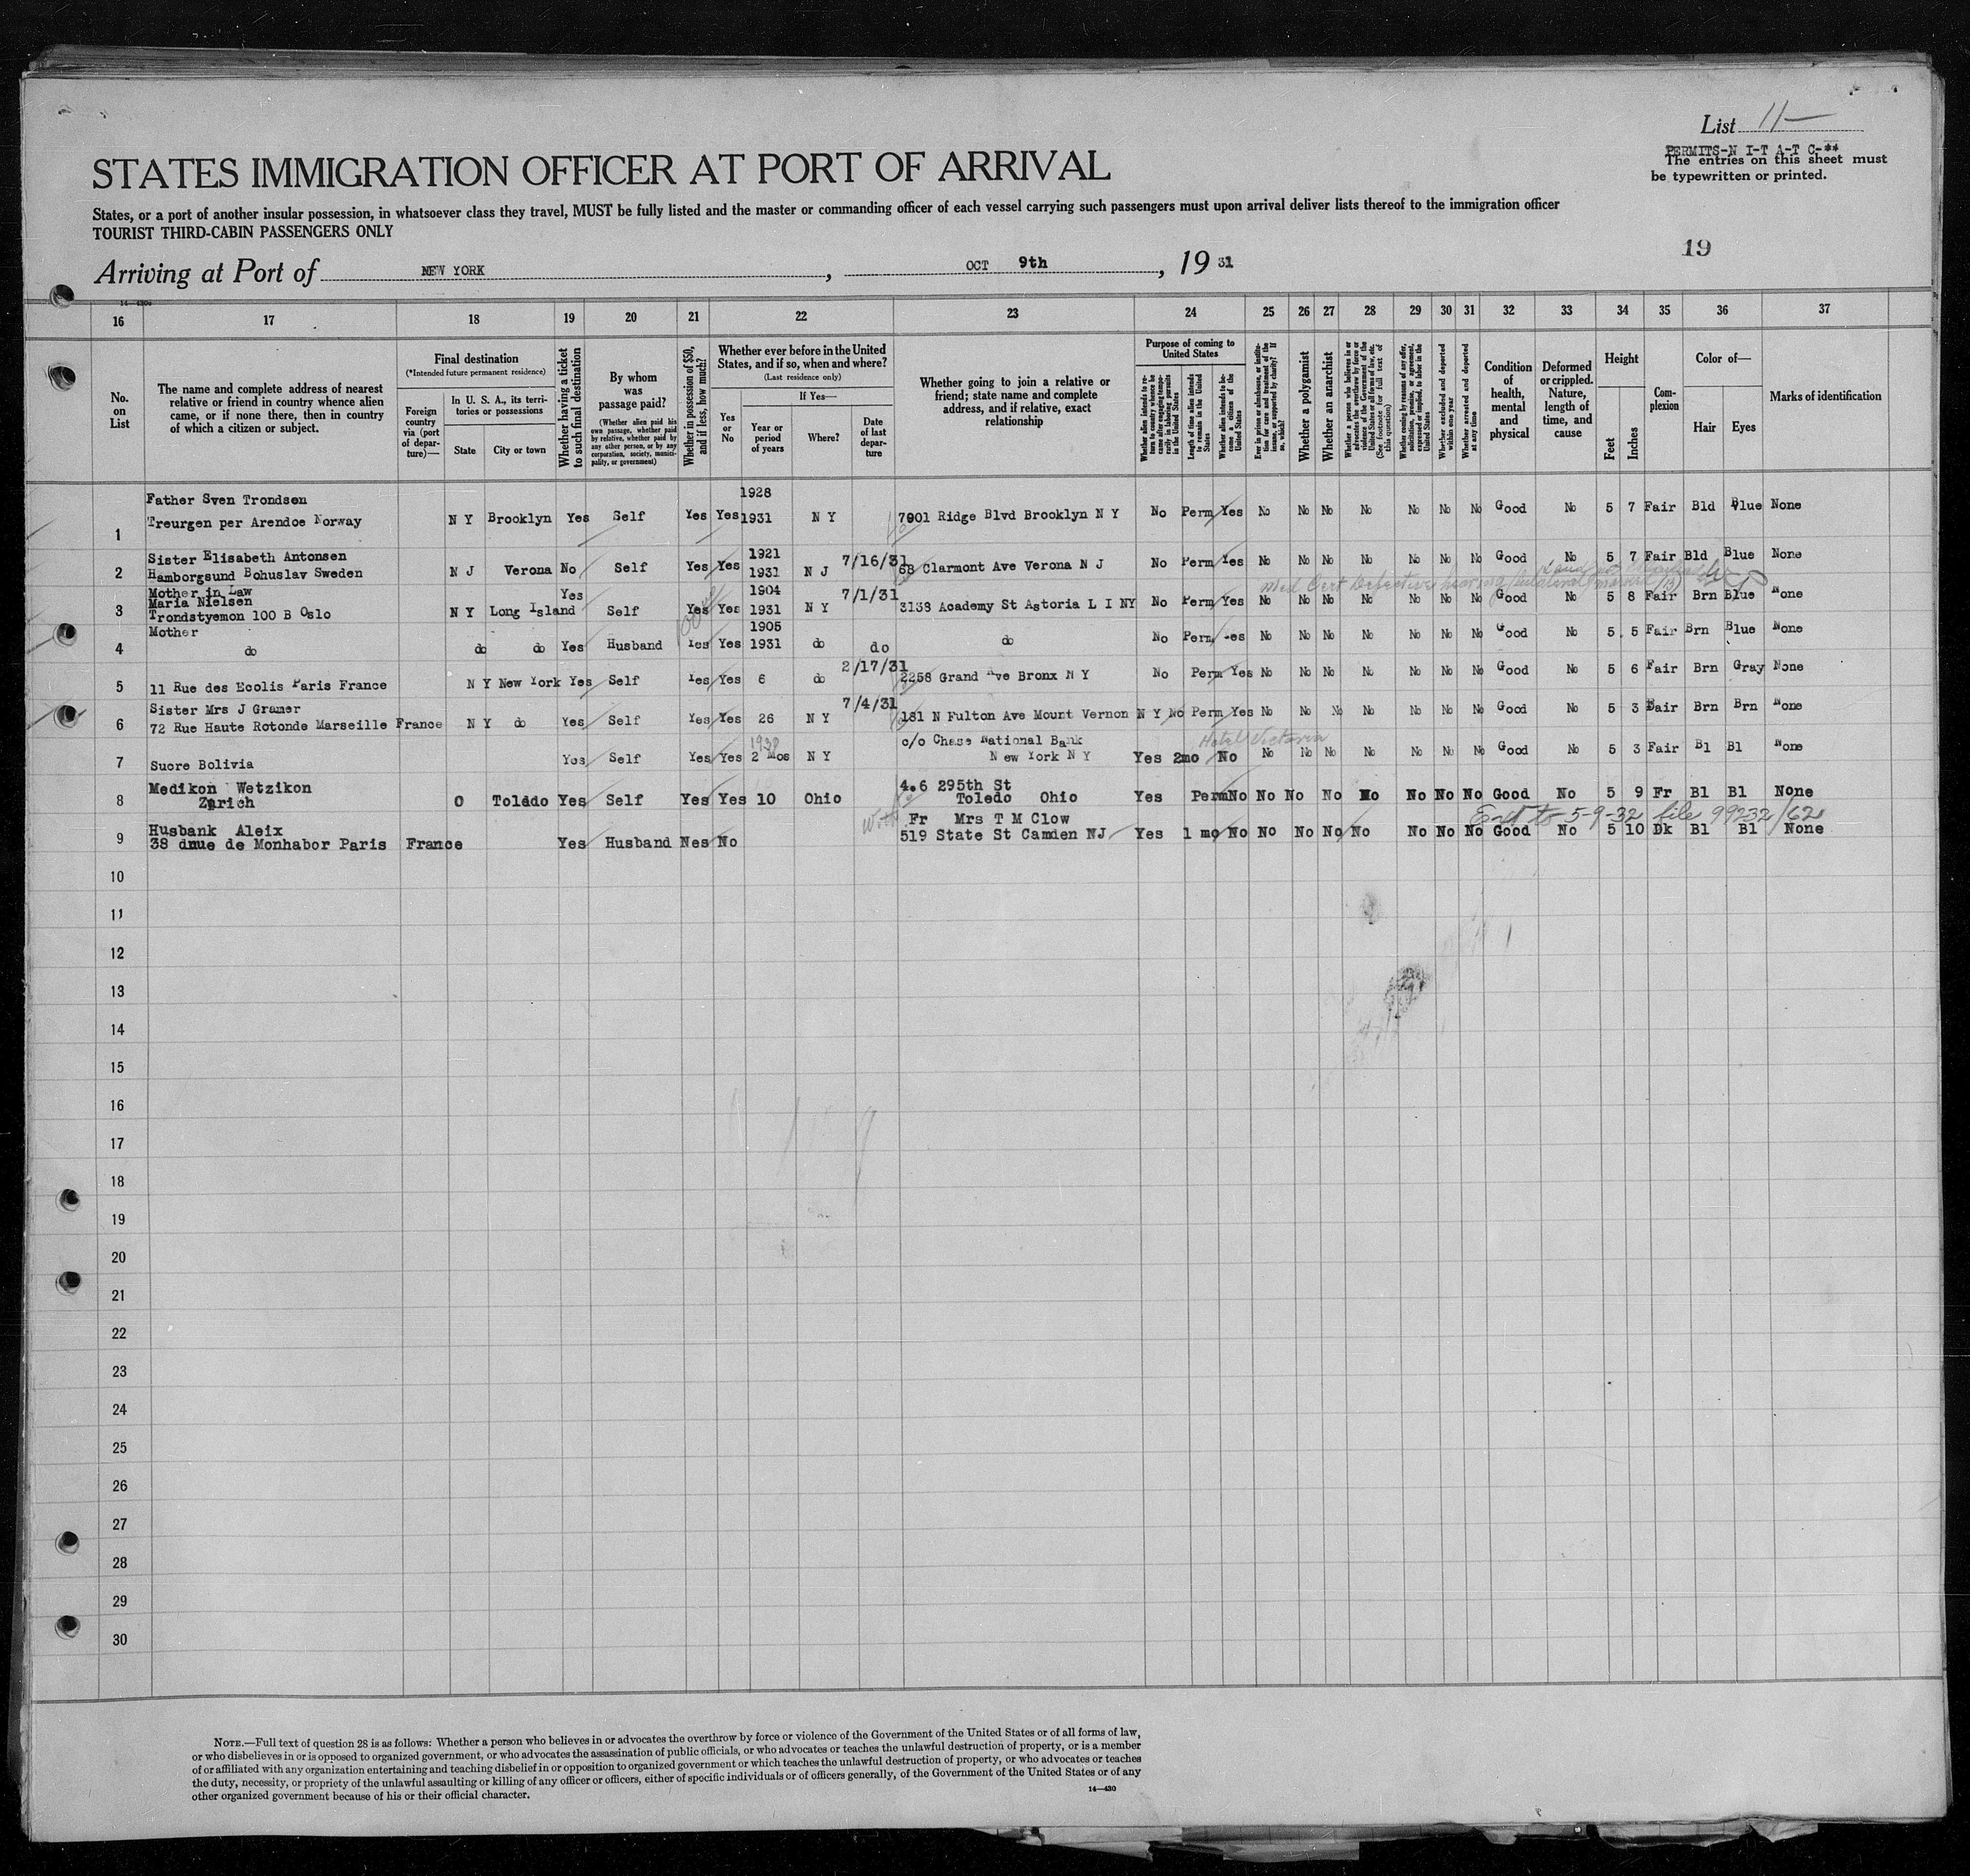 List 11
PERMITS-N I-T A-T C-**
The entries on this sheet must
be typewritten or printed.
STATES IMMIGRATION OFFICER AT PORT OF ARRIVAL
States, or a port of another insular possession, in whatsoever class they travel, MUST be fully listed and the master or commanding officer of each vessel carrying such passengers must upon arrival deliver lists thereof to the immigration officer
TOURIST THIRD-CABIN PASSENGERS ONLY
19
Arriving at Port of NEW YORK, OCT 9th, 19 31
16 17 18 19 20 21 22 23 24 25 26 27 28 29 30 31 32 33 34 35 36 37
No. on List
The name and complete address of nearest relative or friend in country whence alien came, or if none there, then in country of which a citizen or subject.
Final destination
(*Intended future permanent residence)
Foreign country via (port of departure)—
In U. S. A., its territories or possessions
State
City or town
Whether having a ticket to such final destination
By whom was passage paid?
(Whether alien paid his own passage, whether paid by relative, whether paid by any other person, or by any corporation, society, municipality, or government)
Whether in possession of $50, and if less, how much?
Whether ever before in the United States, and if so, when and where?
(Last residence only)
Yes or No
If Yes—
Year or period of years
Where?
Date of last departure
Whether going to join a relative or friend; state name and complete address, and if relative, exact relationship
Purpose of coming to United States
Whether alien intends to return to country whence he came after engaging temporarily in laboring pursuits in the United States
Length of time alien intends to remain in the United States
Whether alien intends to become a citizen of the United States
Ever in prison or almshouse, or institution for care and treatment of the insane, or supported by charity? If so, which?
Whether a polygamist
Whether an anarchist
Whether a person who believes in or advocates the overthrow by force or violence of the Government of the United States or all forms of law, etc. (See footnote for full text of this question)
Whether coming by reasons of any offer, solicitation, promise, or agreement, expressed or implied, to labor in the United States
Whether excluded and deported within one year
Whether arrested and deported at any time
Condition of health, mental and physical
Deformed or crippled. Nature, length of time, and cause
Height
Feet
Inches
Complexion
Color of—
Hair
Eyes
Marks of identification
Father Sven Trondsen 1928
1 Treurgen per Arendoe Norway N Y Brooklyn Yes Self Yes Yes 1931 N Y 7901 Ridge Blvd Brooklyn N Y No Perm Yes No No No No No No No Good No 5 7 Fair Bld Blue None
Sister Elisabeth Antonsen 1921 7/16/31
2 Hamborgsund Bohuslav Sweden N J Verona No Self Yes Yes 1931 N J 68 Clarmont Ave Verona N J No Perm Yes No No No No No No No Good No 5 7 Fair Bld Blue None
Med Cert Defective hearing bilateral
Mother in Law Yes 1904 7/1/31
Maria Nielsen
3 Trondstyemon 100 B Oslo N Y Long Island Self Yes Yes 1931 N Y 3138 Academy St Astoria L I NY No Perm Yes No No No No No No No Good No 5 8 Fair Brn Blue None
Mother 1905
4 do do do Yes Husband Yes Yes 1931 do do do No Perm -es No No No No No No No Good No 5 5 Fair Brn Blue None
2/17/31
5 11 Rue des Ecolis Paris France N Y New York Yes Self Yes Yes 6 do 2258 Grand Ave Bronx N Y No Perm Yes No No No No No No No Good No 5 6 Fair Brn Gray None
Sister Mrs J Gramer 7/4/31
6 72 Rue Haute Rotonde Marseille France N Y do Yes Self Yes Yes 26 N Y 181 N Fulton Ave Mount Vernon N Y No Perm Yes No No No No No No No Good No 5 3 Fair Brn Brn None
c/o Chase National Bank Hotel Victoria
7 Sucre Bolivia Yes Self Yes Yes 2 Mos N Y New York N Y Yes 2mo No No No No No No No No Good No 5 3 Fair Bl Bl None
Medikon Wetzikon 4.6 295th St
8 Zurich O Toledo Yes Self Yes Yes 10 Ohio Toledo Ohio Yes Perm No No No No No No No No Good No 5 9 Fr Bl Bl None
Ext to 5-9-32 file 99232/62
Husbank Aleix Fr Mrs T M Clow
9 38 dnue de Monhabor Paris France Yes Husband Nes No 519 State St Camden NJ Yes 1 mo No No No No No No No No Good No 5 10 Dk Bl Bl None
10
11
12
13
14
15
16
17
18
19
20
21
22
23
24
25
26
27
28
29
30
NOTE.—Full text of question 28 is as follows: Whether a person who believes in or advocates the overthrow by force or violence of the Government of the United States or of all forms of law,
or who disbelieves in or is opposed to organized government, or who advocates the assassination of public officials, or who advocates or teaches the unlawful destruction of property, or is a member
of or affiliated with any organization entertaining and teaching disbelief in or opposition to organized government or which teaches the unlawful destruction of property, or who advocates or teaches
the duty, necessity, or propriety of the unlawful assaulting or killing of any officer or officers, either of specific individuals or of officers generally, of the Government of the United States or of any
other organized government because of his or their official character.
14—430